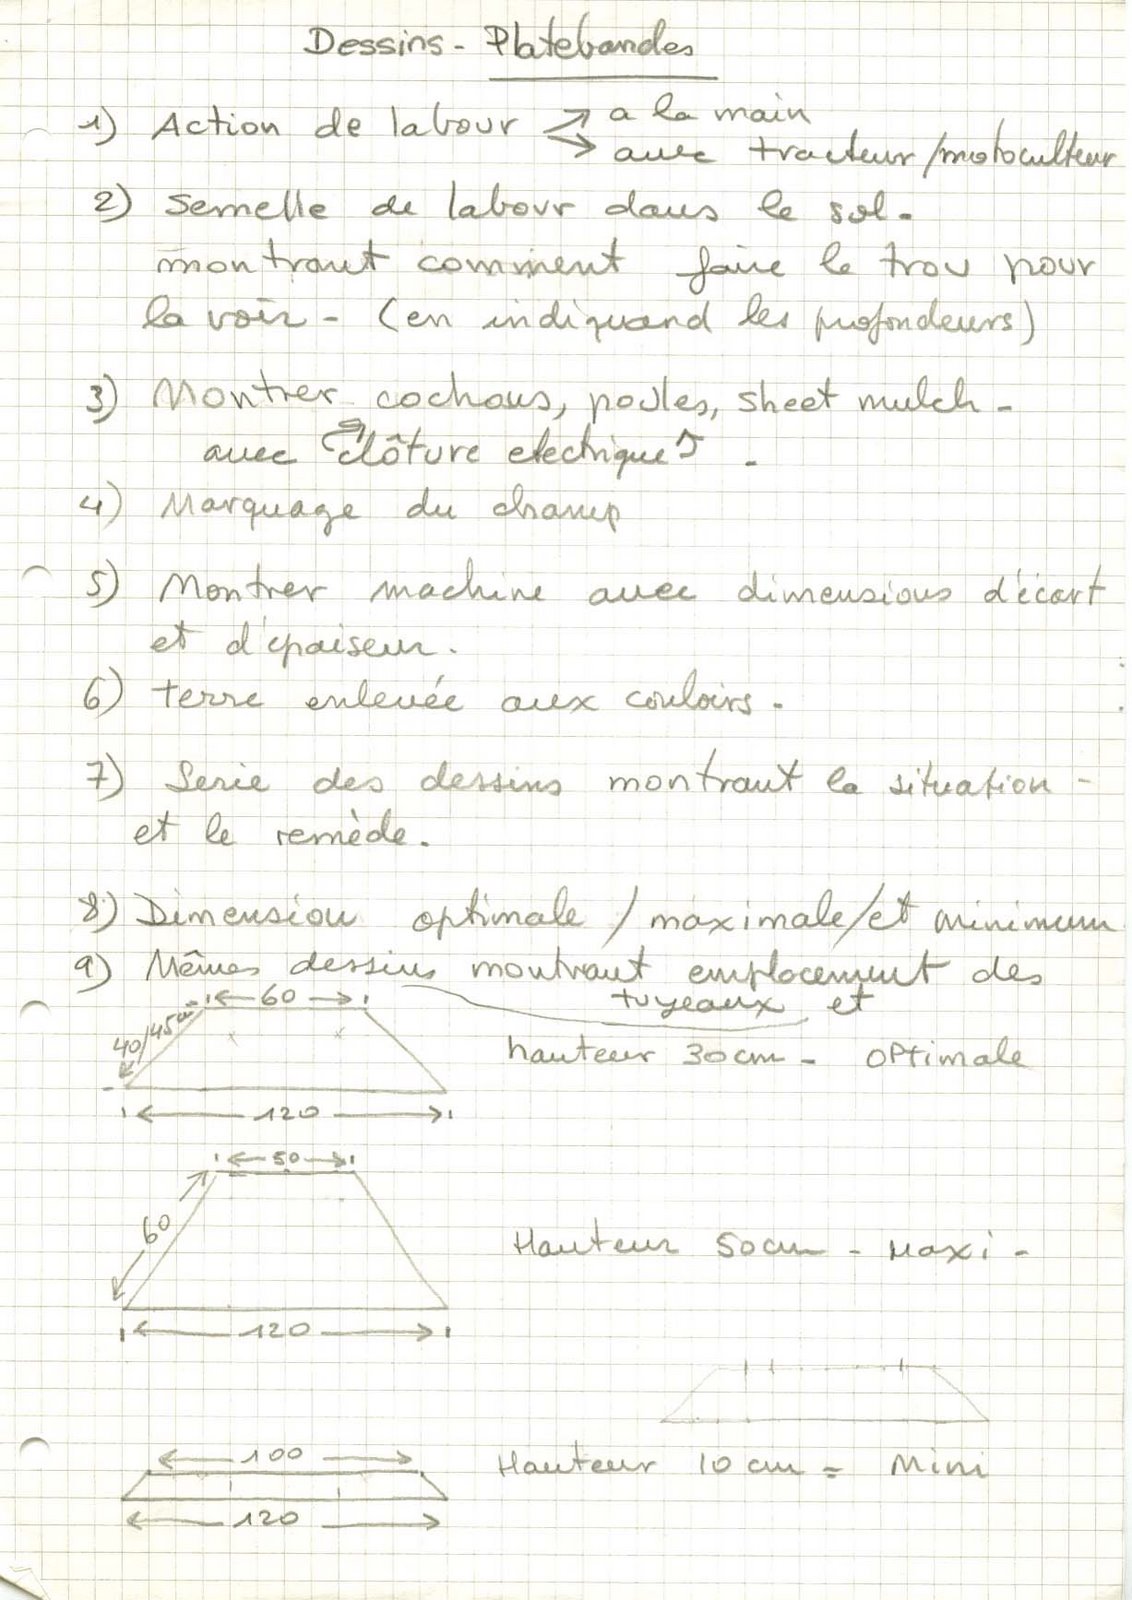 Dessins - Platebandes
1) Action de labour ↗ a la main
→ avec tracteur/motoculteur
2) Semelle de labour dans le sol.
montrant comment faire le trou pour
la voir - (en indiquand les profondeurs)
3) Montrer cochons, poules, sheet mulch -
avec clôture electrique .
4) Marquage du champ
5) Montrer machine avec dimensions d'écart
et d'épaiseur.
6) terre enlevée aux couloirs.
7) Serie des dessins montrant la situation -
et le remède.
8) Dimension optimale / maximale/et minimum
9) Mêmes dessins montrant emplacement des
tuyeaux et
60
40/45cm
hauteur 30cm - optimale
120
50
60
Hauteur 50cm - Maxi -
120
100
Hauteur 10 cm = Mini
120